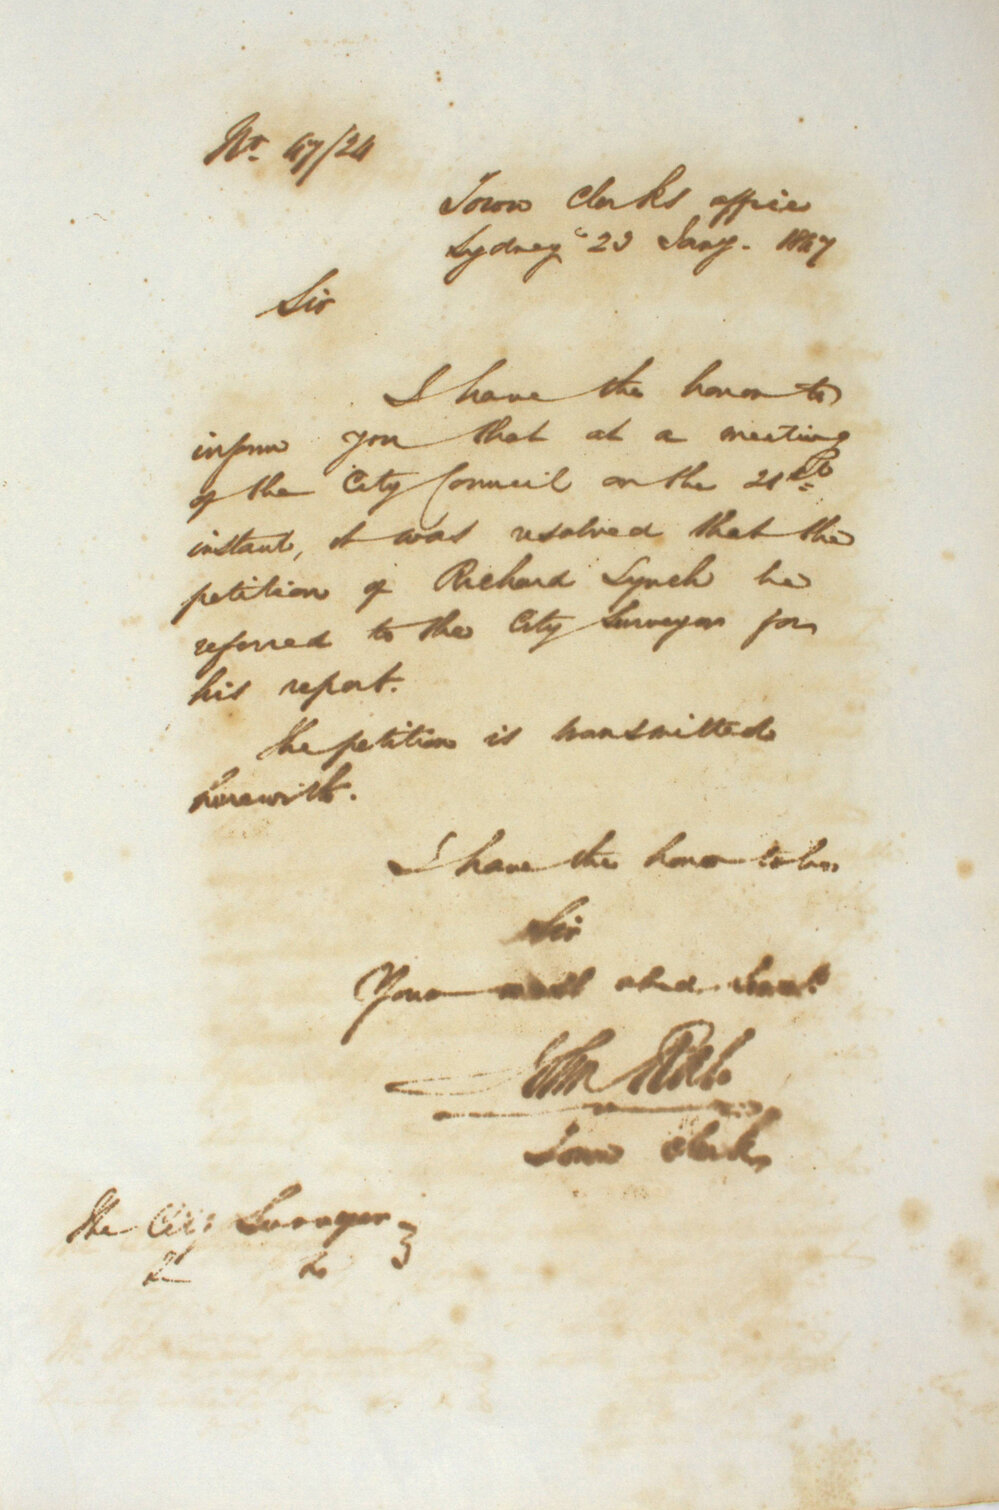 No. 47/24
Town Clerks office
Sydney 23 Jany. 1847
Sir
I have the honor to
inform you that at a meeting
of the City Council on the 21st
instant, it was resolved that the
petition of Richard Lynch be
referred to the City Surveyor for
his report.
The petition is transmitted
herewith.
I have the honor to be.
Sir
Your most obed. Servt.
John Rae
Town Clerk
The City Surveyor